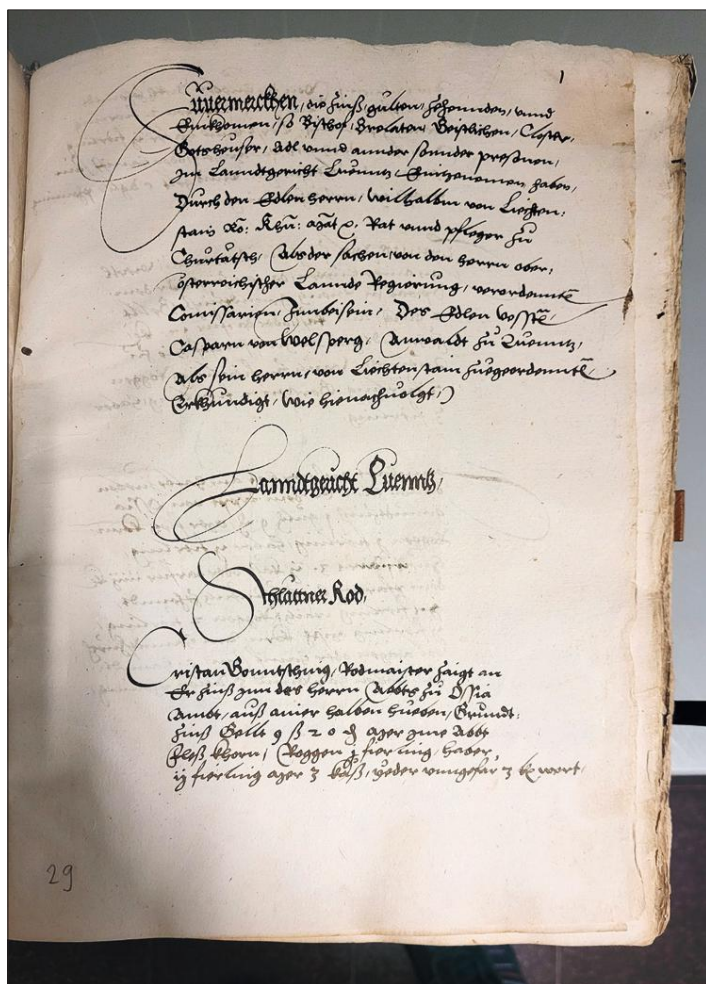 1
Zuuermerckhen, die Zinß, gulten, Zehennden, vnnd
Einkhomen, so Bischof, Prelaten, Geistlichen, Closter,
Gotsheuser, Adl vnnd annder sonnder presonen,
Im Lanndtgericht Luenntz Einzenemen haben,
Durch den Edlen herrn, Wilhalbm von Liechten,
stain Rö: Khü: Rat vnnd pfleger zu
Als der sachen, von den herrn ober,
österreichischer Lannde Regierung, verordennte
Comissarien, Innbeisein, Des Edlen vesste
Casparn von Welsperg, Anwaldt zu Luenntz,
als sein herrn, von Liechtenstain zuegeordennte
Erkhundigt, wie hienachuolgt
Lanndtgericht Luenntz,
Schlattner Rod,
Cristan Rodmaister Zaigt an
Er Zinß inn des herrn Abbts zu Ossia
Ambt, auß ainer halben hueben, Grundt:
Zinß Gellt 9 ß 20 ₰ aber ine Abbt
khorn, Roggen j fierling, haber,
ij fierling aber 3 käß, yeder vnngefar 3 kr wert,
29